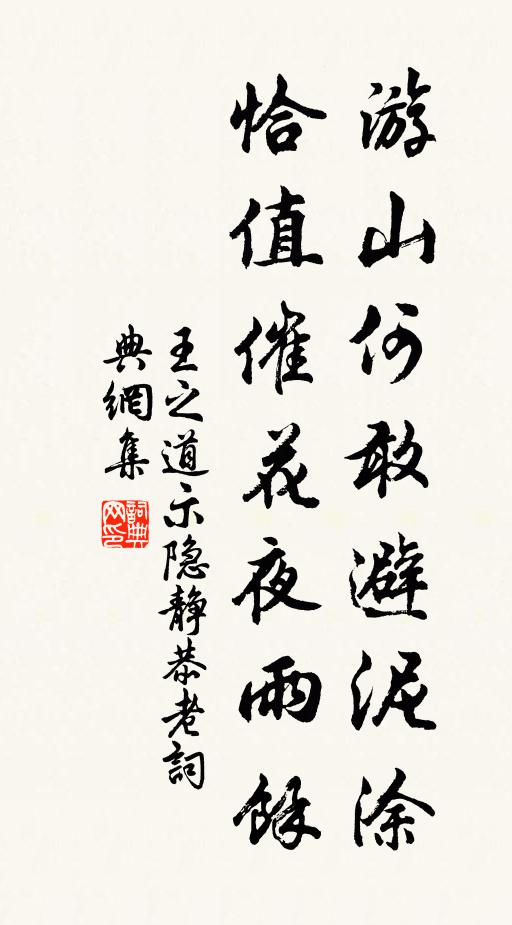 游山何敢避泥涂
恰值催花夜雨餘
王之道示隐静恭老詞
典網集
詞典网印